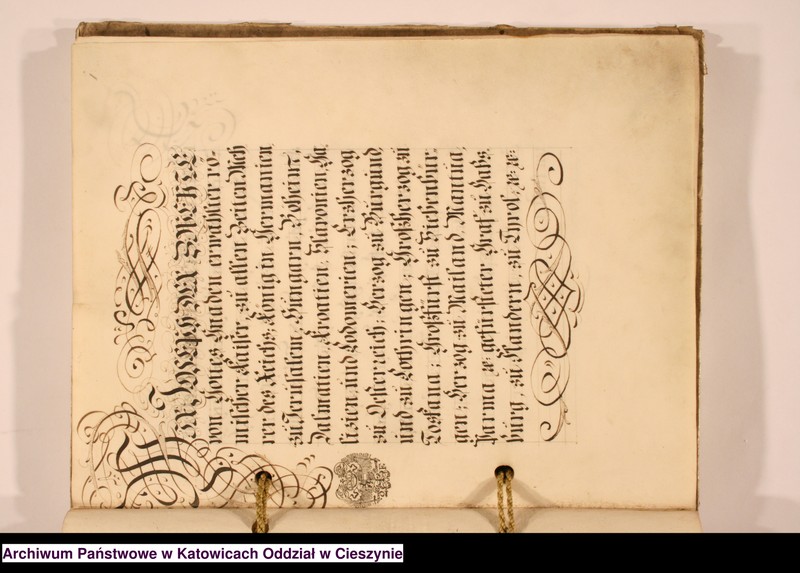 WIR JOSEPH DER ZWEYTE
von Gottes Gnaden erwählter rö-
mischer Kaiser, zu allen Zeiten Meh
rer des Reichs, König in Germanien,
zu Jerusalem, Hungarn, Boheim,
Dalmatien, Kroatien, Slavonien, Ga
lizien, und Lodomerien; Erzherzog
zu Oesterreich; Herzog zu Burgund
und zu Lothringen; Großherzog zu
Toskana; Großfürst zu Siebenbür-
gen; Herzog zu Mailand, Mantua,
Parma æ: gefürsteter Graf zu Habs
burg, zu Flandern, zu Tyrol, æ: æ:
Archiwum Państwowe w Katowicach Oddział w Cieszynie